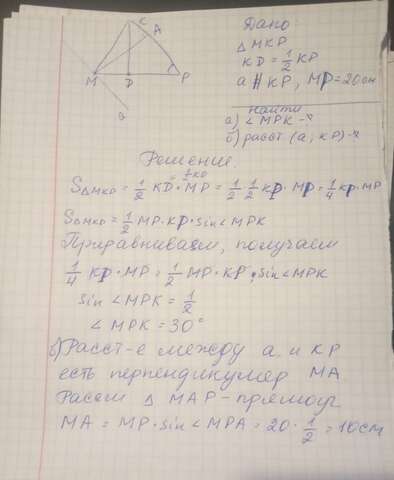 Дано:
△ MKP
KD = 1/2 KP
a ∦ KP, MP = 20 см
найти
а) ∠ MPK - ?
б) расст (a; KP) - ?
C
A
M
D
P
B
Решение.
= 1/2 KD
S△MKD = 1/2 KD · MP = 1/2 · 1/2 KP · MP = 1/4 KP · MP
S△MKD = 1/2 MP · KP · sin ∠ MPK
Приравниваем, получаем
1/4 KP · MP = 1/2 MP · KP · sin ∠ MPK
sin ∠ MPK = 1/2
∠ MPK = 30°
б) Расст-е между a и KP
есть перпендикуляр MA
Рассм △ MAP - прямоуг
MA = MP · sin ∠ MPA = 20 · 1/2 = 10 см